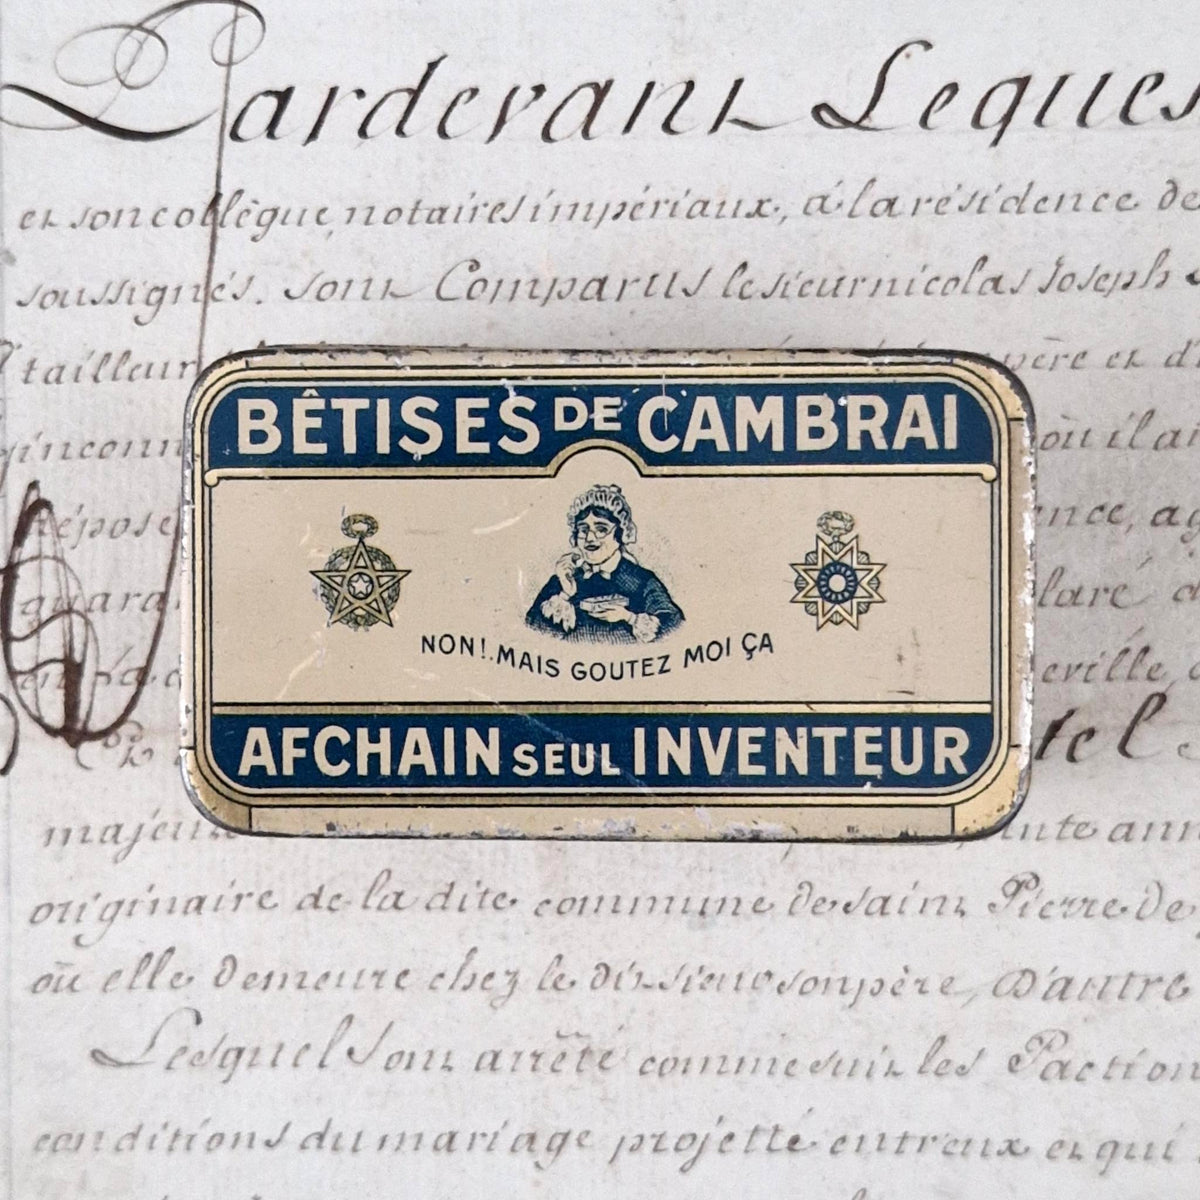 Pardevant Leques
et son collègue, notaires impériaux, à la résidence de
soussignés. sont Comparus le sieur nicolas Joseph
tailleur père et d'
inconn où il a
dépose nce, ag
quara laré
eville,
tel
BÊTISES DE CAMBRAI
NON! MAIS GOUTEZ MOI ÇA
AFCHAIN SEUL INVENTEUR
majeu ante ann
originaire de la dite commune de saint Pierre de
où elle demeure chez le dit sieur son père, D'autre
Lesquels sont arrêté comme suit les Paction
conditions du mariage projetté entreux et qui